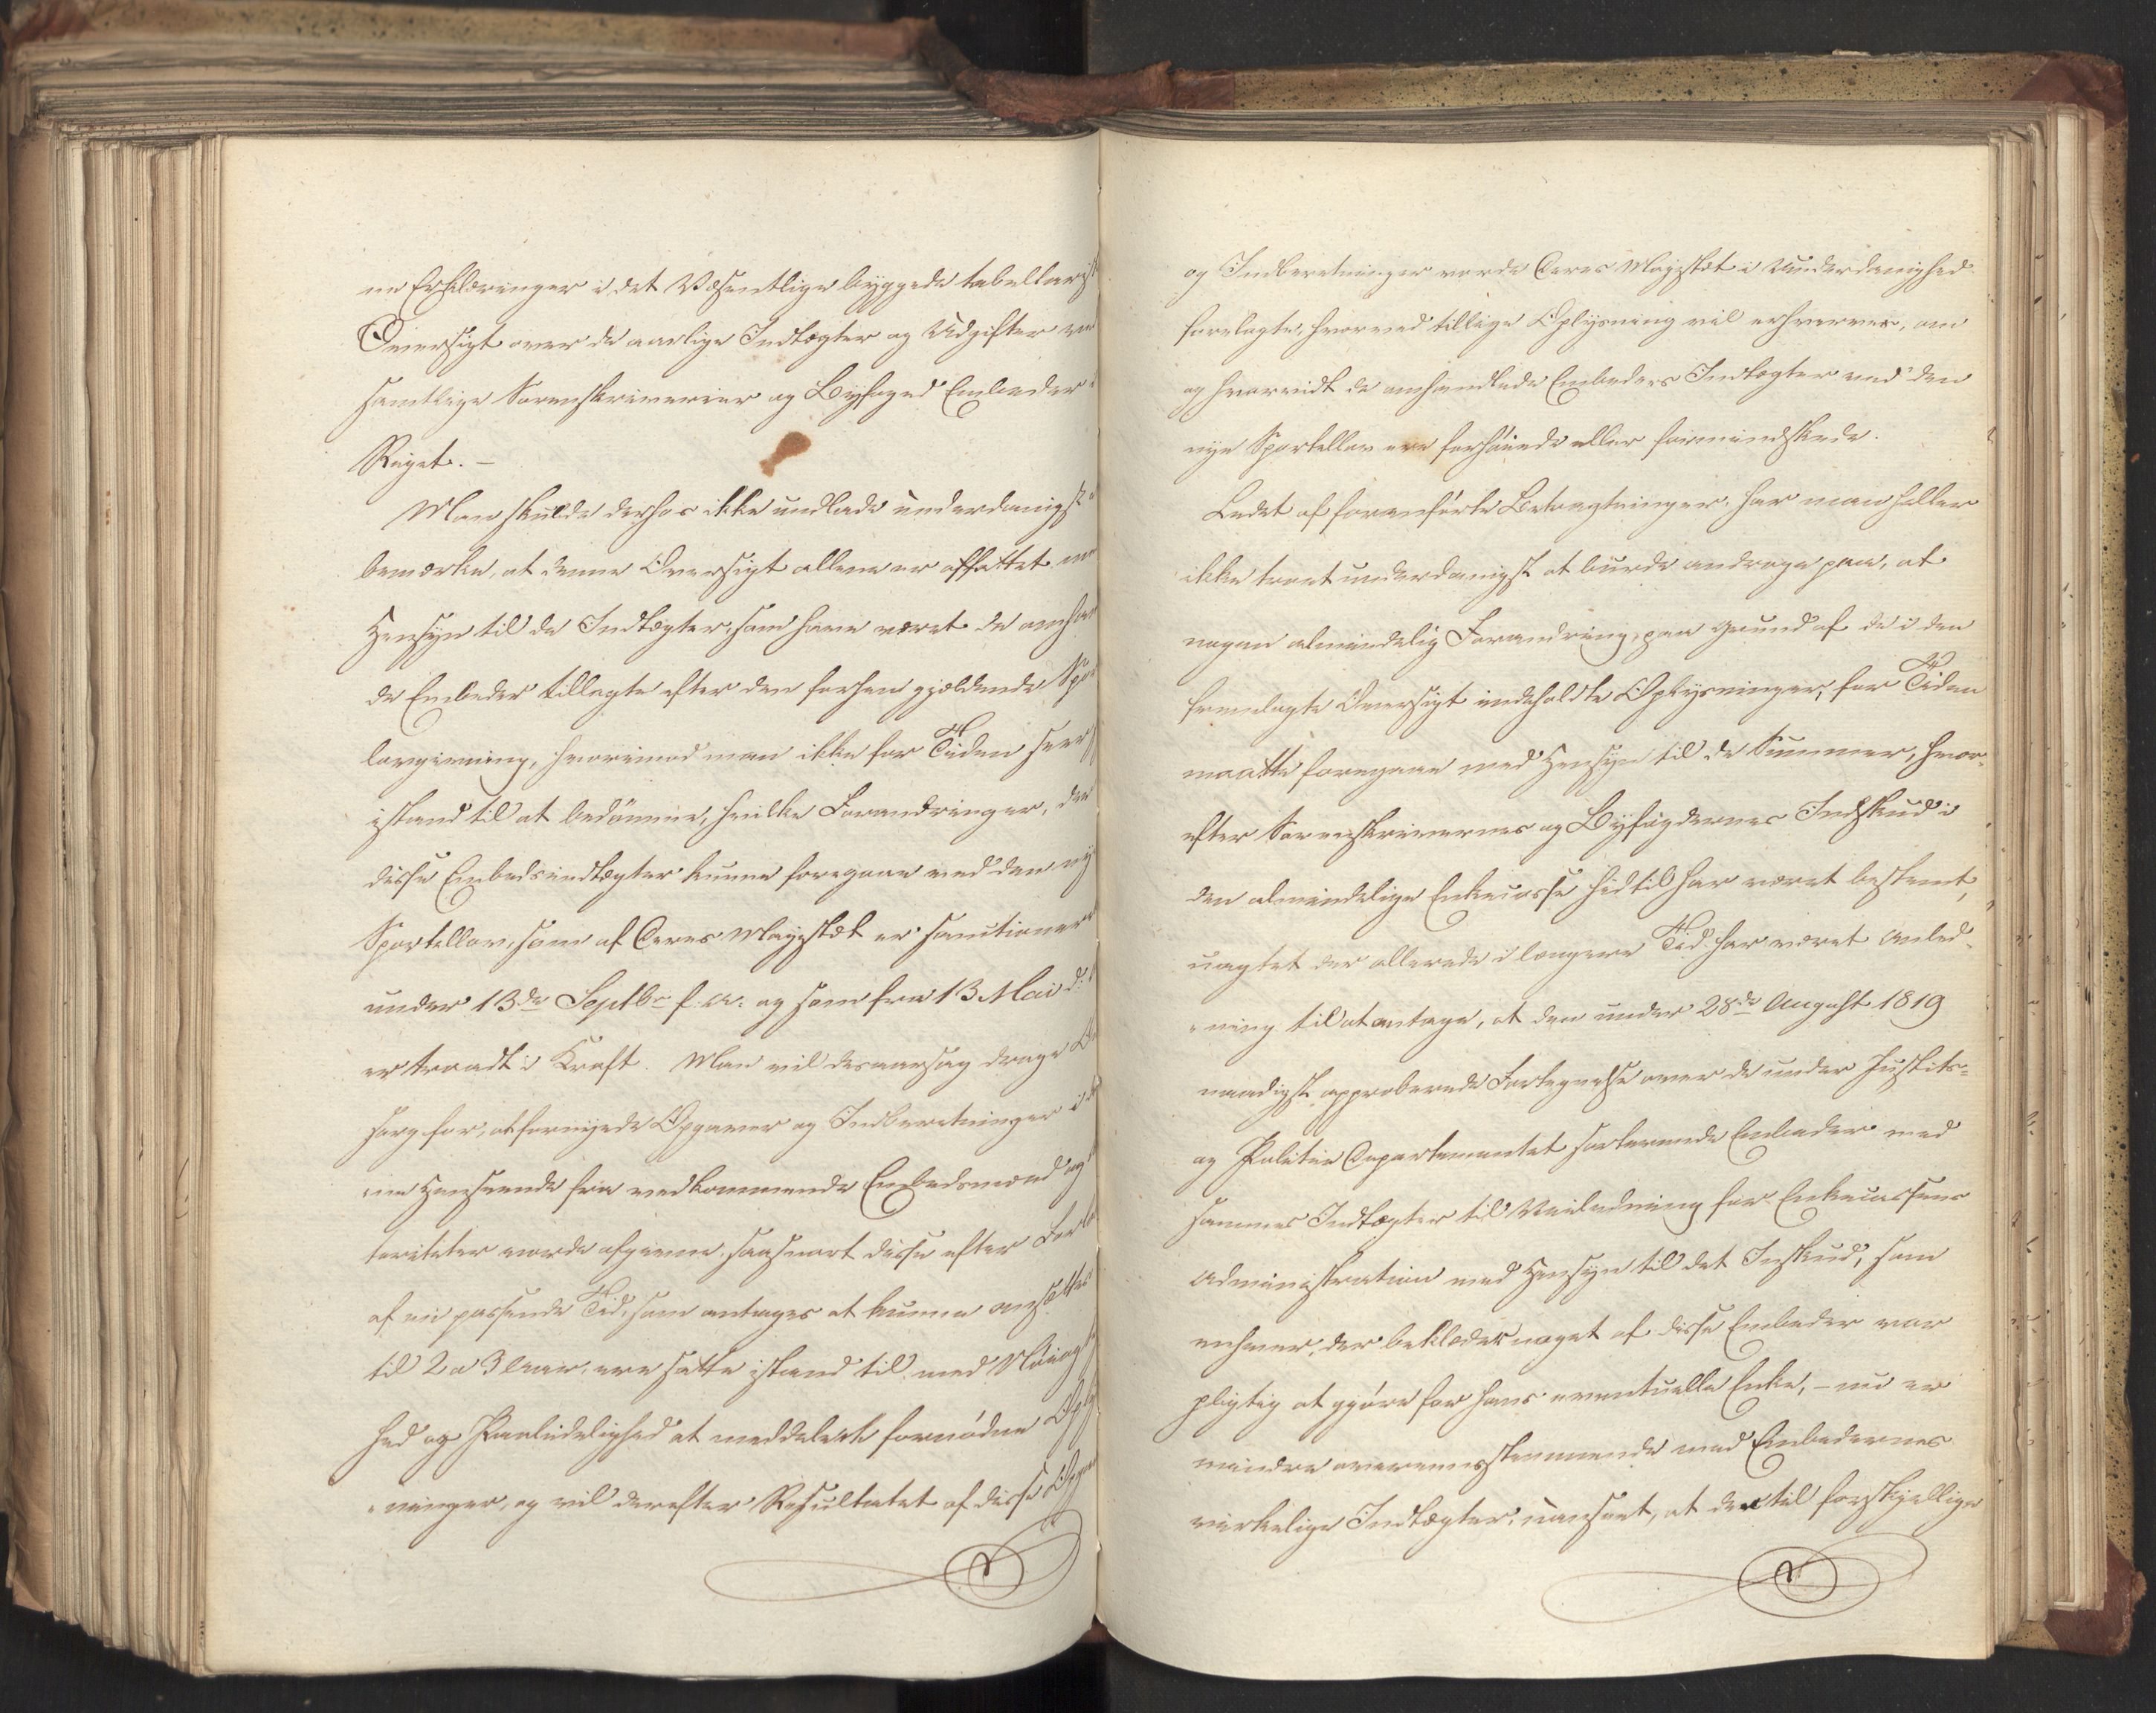 ne Erklæringer i det Væsentlige byggede tabellarisk
Oversigt over de aarlige Indtægter og Udgifter ved
samtlige Sorenskriverier og Byfoged Embeder i
Riget. –
Man skulde derhos ikke undlade underdanigst at
bemærke, at denne Oversigt allene er affattet med
Hensyn til de Indtægter, som have været de omhand
de Embeder tillagte efter den forhen gjældende Spor
lovgivning, hvorimod man ikke for Tiden seer sig
istand til at bedømme, hvilke Forandringer, der
disse Embedsindtægter kunne foregaae ved den nye
Sportellov, som af Deres Majestæt er sanctioneret
under 13de Septbr f. A. og som fra 13 Mai d. A.
er traadt i Kraft. Man vil desaarsag drage Om
sorg for, at fornyede Opgaver og Indberetninger i den
ne Henseende fra vedkommende Embedsmænd og Au
toriteter vorde afgivne, saasnart disse efter Forløb
af en passende Tid, som antages at kunne ansættes
til 2 a 3 Aar, ere satte istand til med Nøiag
hed og Paalidelighed at meddele de fornødne Oplys
ninger, og vil derefter Resultatet af disse Opgaver
og Indberetninger vorde Deres Majestæt i Underdanighed
forelagte, hvorved tillige Oplysning vil erhverves, om
og hvorvidt de omhandlede Embeders Indtægter ved den
nye Sportellov ere forhøiede eller formindskede.
Ledet af foranførte Betragtninger, har man heller
ikke troet underdanigst at burde andrage paa, at
nogen almindelig Forandring, paa Grund af de i den
fremlagte Oversigt indeholdte Oplysninger, for Tiden
maatte foregaae med Hensyn til de Summer, hvor-
efter Sorenskrivernes og Byfogdernes Indskud i
den almindelige Enkecasse hidtil har været bestemt,
uagtet der allerede i længere Tid har været Anled-
ning til at antage, at den under 28de August 1819
naadigst approberede Fortegnelse over de under Justits-
og Politie Departementet sorterende Embeder med
sammes Indtægter til Veiledning for Enkecassens
Administration med Hensyn til det Inskud, som
enhver, der beklæder noget af disse Embeder var
pligtig at gjøre for hans eventuelle Enke, – nu er
mindre overeensstemmende med Embedernes
virkelige Indtægter, uanseet, at der til forskjellige